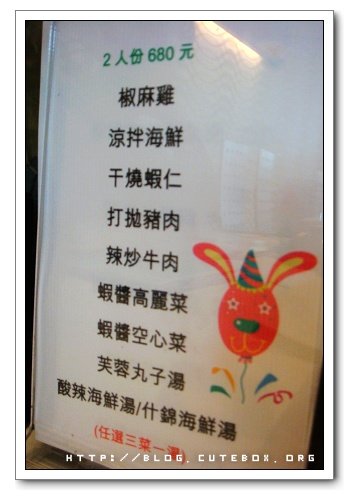 2人份680元
椒麻雞
涼拌海鮮
干燒蝦仁
打拋豬肉
辣炒牛肉
蝦醬高麗菜
蝦醬空心菜
芙蓉丸子湯
酸辣海鮮湯/什錦海鮮湯
(任選三菜一湯)
HTTP://BLOG.CUTEBOX.ORG